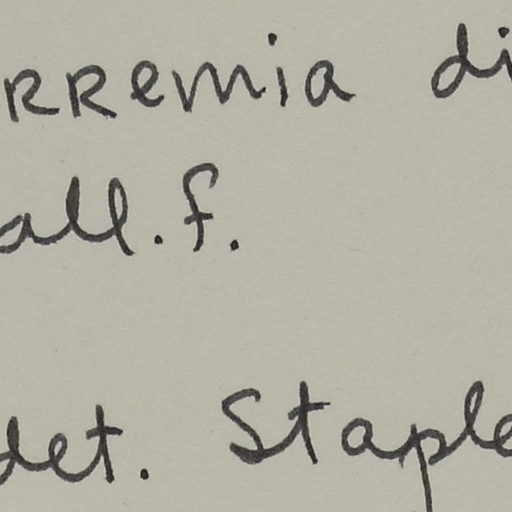 rremia di
all.f.
det. Staple